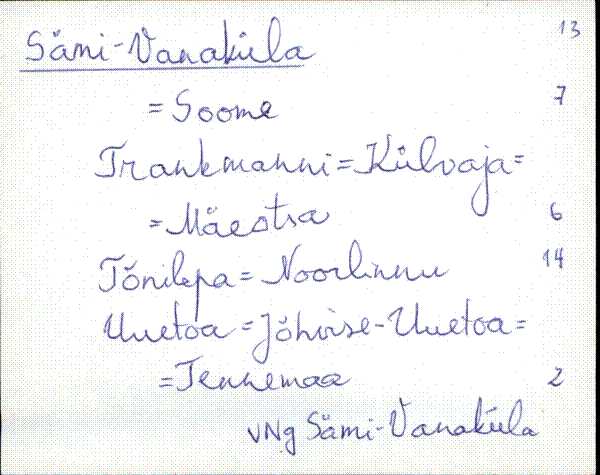 Sämi-Vanaküla 13
= Soome 7
Trankmanni = Külvaja =
= Mäeotsa 6
Tõnilepa = Noorlinnu 14
Uuetoa = Jõhvise-Uuetoa =
= Tennemaa 2
VNg Sämi-Vanaküla